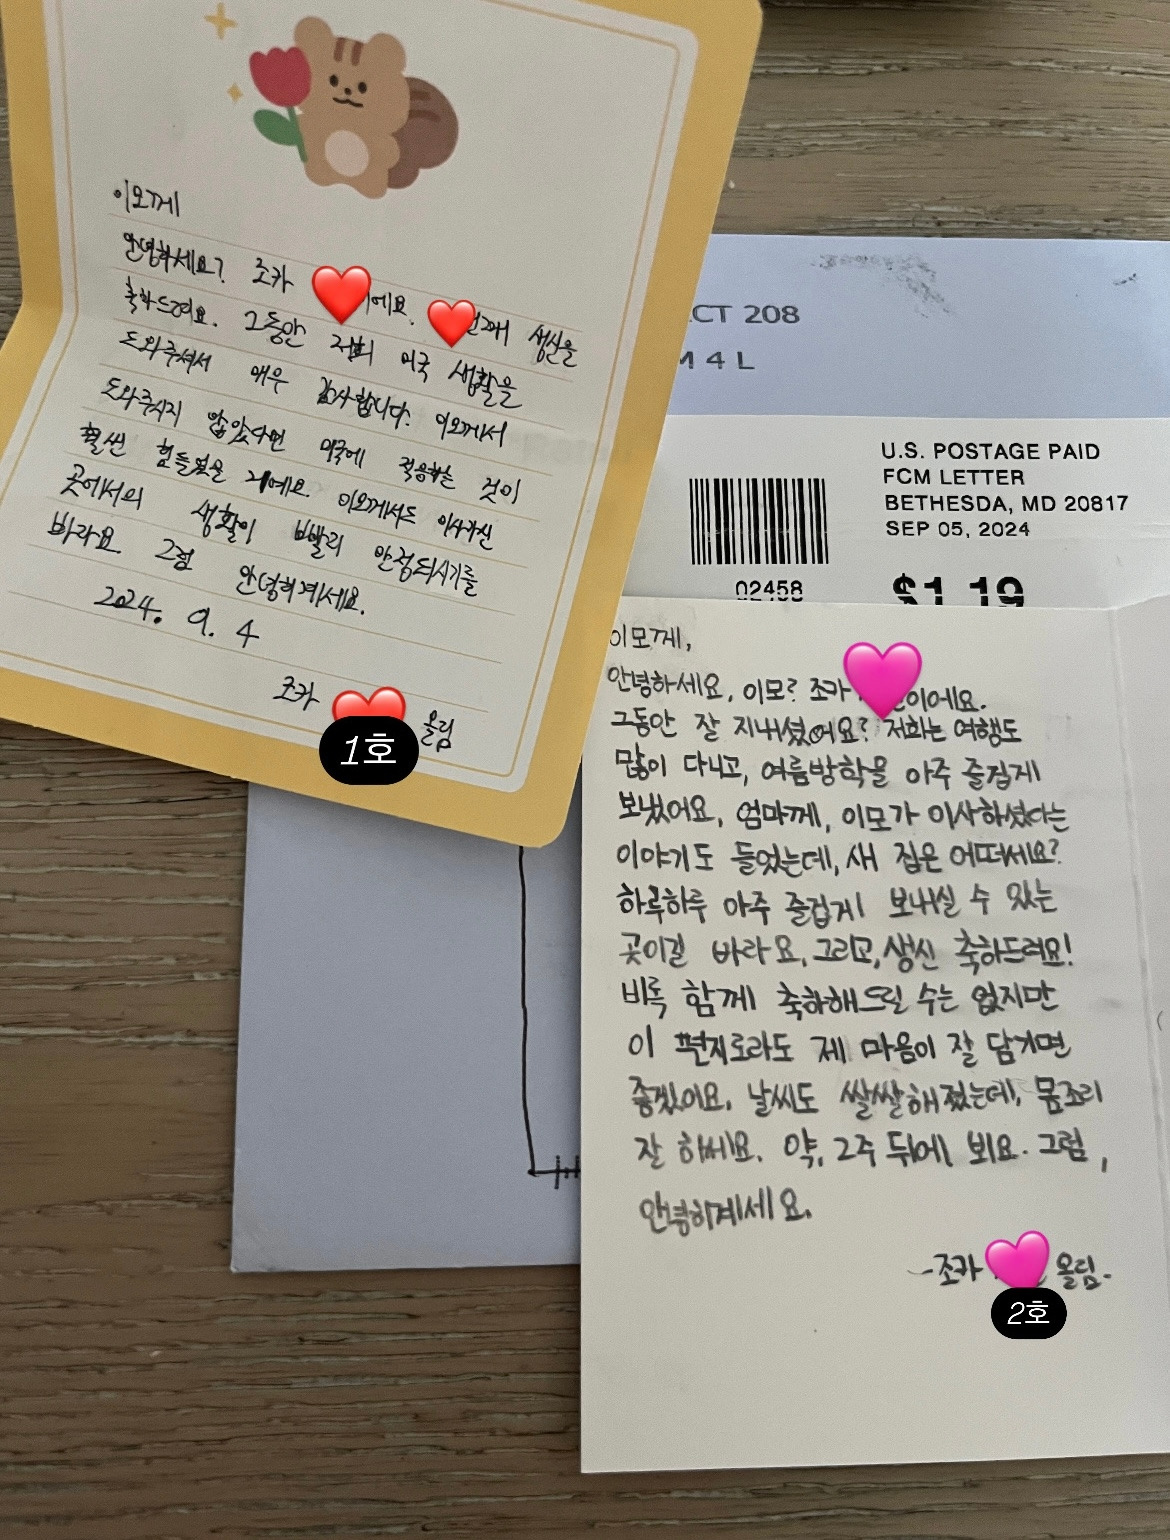 이모께
안녕하세요? 조카 에요. 번째 생신을
축하드려요. 그동안 저희 미국 생활을
도와주셔서 매우 감사합니다. 이모께서
도와주시지 않았다면 미국에 적응하는 것이
훨씬 힘들었을 거에요. 이모께서도 이사가신
곳에서의 생활이 빨리 안정되시기를
바라요. 그럼 안녕히계세요.
2024. 9. 4
조카 올림
1호
CT 208
M 4 L
U.S. POSTAGE PAID
FCM LETTER
BETHESDA, MD 20817
SEP 05, 2024
02458
$1.19
이모께,
안녕하세요, 이모? 조카 이에요.
그동안 잘 지내셨어요? 저희는 여행도
많이 다니고, 여름방학을 아주 즐겁게
보냈어요. 엄마께, 이모가 이사하셨다는
이야기도 들었는데, 새 집은 어떠세요?
하루하루 아주 즐겁게 보내실 수 있는
곳이길 바라요. 그리고, 생신 축하드려요!
비록 함께 축하해드릴 수는 없지만
이 편지로라도 제 마음이 잘 담기면
좋겠어요. 날씨도 쌀쌀해졌는데, 몸조리
잘 하세요. 약, 2주 뒤에 뵈요. 그럼,
안녕히계세요.
-조카 올림-
2호